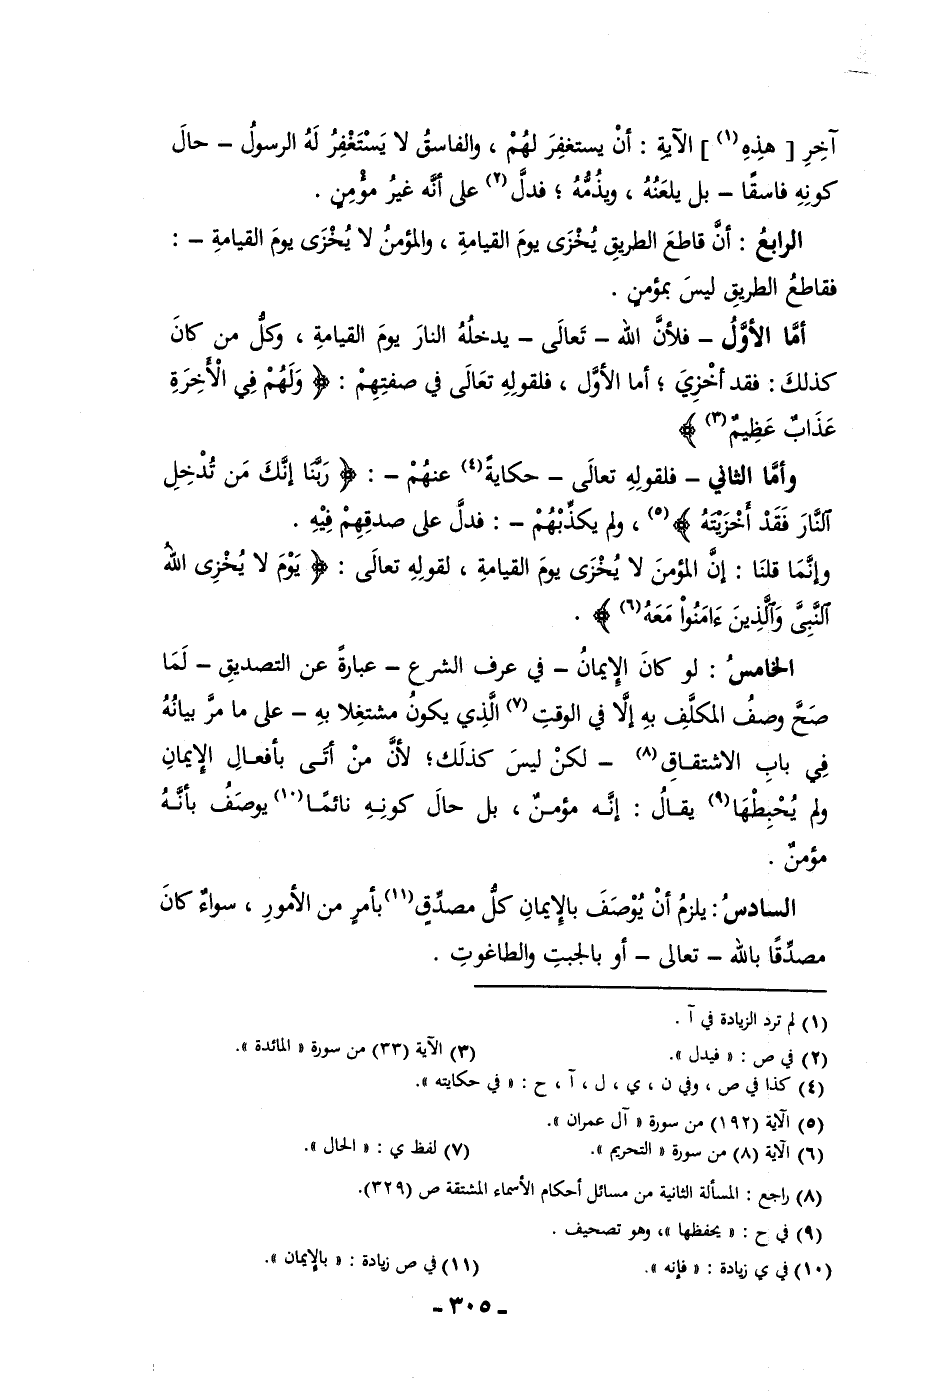 آخِرِ [ هذِهِ(١) ] الآيةِ : أنْ يستغفِرَ لهُمْ ، والفاسقُ لا يَسْتَغْفِرُ لَهُ الرسولُ – حالَ
كونِهِ فاسقًا – بل يلعَنُهُ ، ويذُمُّهُ ؛ فدلَّ(٢) على أنَّه غيرُ مؤْمِنٍ .
الرابعُ : أنَّ قاطعَ الطريقِ يُخْزَى يومَ القيامةِ ، والمؤمنُ لا يُخْزَى يومَ القيامةِ – :
فقاطعُ الطريقِ ليسَ بمؤمنٍ .
أمَّا الأوَّلُ – فلأنَّ الله – تَعالَى – يدخلُهُ النارَ يومَ القيامةِ ، وكلُّ من كانَ
كذلكَ : فقد أخْزِيَ ؛ أما الأوَّل ، فلقولِهِ تعَالَى في صفتِهِمْ : ﴿ وَلَهُمْ فِي الْأَخِرَةِ
عَذَابٌ عَظِيمٌ(٣) ﴾
وأمَّا الثاني – فلقولِهِ تعالَى – حكايةً(٤) عنهُمْ – : ﴿ رَبَّنَا إنَّكَ مَن تُدْخِلِ
ٱلنَّارَ فَقَدْ أَخْزَيْتَهُ ﴾(٥) ، ولم يكذِّبْهُمْ – : فدلَّ على صدقِهِمْ فِيْهِ .
وإنَّمَا قلنَا : إنَّ المؤمنَ لا يُخْزَى يومَ القيامةِ ، لقولِهِ تعالَى : ﴿ يَوْمَ لا يُخْزِى اللهُ
ٱلنَّبِىَّ وَٱلَّذِينَ ءَامَنُواْ مَعَهُ(٦) ﴾ .
الخامسُ : لو كانَ الإِيمانُ – في عرف الشرع – عبارةً عن التصديقِ – لَمَا
صَحَّ وصفُ المكلَّفِ بهِ إلَّا في الوقتِ(٧) الَّذِي يكونُ مشتغِلا بهِ – على ما مرَّ بيانُهُ
فِي بابِ الاشتقـاقِ(٨) – لكنْ ليسَ كذلكَ؛ لأنَّ منْ أتَـى بأفعـالِ الإِيمانِ
ولم يُحْبِطْهَا(٩) يقـالُ : إنَّـه مؤمـنٌ ، بل حالَ كونِـهِ نائمًـا(١٠) يوصَفُ بأنَّـهُ
مؤمنٌ .
السادسُ : يلزمُ أنْ يُوْصَفَ بالإِيمانِ كلُّ مصدِّقٍ(١١) بأمرٍ من الأمورِ ، سواءٌ كانَ
مصدِّقًا بالله – تعالى – أو بالجبتِ والطاغوتِ .
(١) لم ترد الزيادة في آ .
(٢) في ص : « فيدل ». (٣) الآية (٣٣) من سورة « المائدة ».
(٤) كذا في ص ، وفي ن ، ي ، ل ، آ ، ح : « في حكايته ».
(٥) الآية (١٩٢) من سورة « آل عمران ».
(٦) الآية (٨) من سورة « التحريم ». (٧) لفظ ي : « الحال ».
(٨) راجع : المسألة الثانية من مسائل أحكام الأسماء المشتقة ص (٣٢٩).
(٩) في ح : « يحفظها »، وهو تصحيف .
(١٠) في ي زيادة : « فإنه ». (١١) في ص زيادة : « بالإيمان ».
– ٣٠٥ –